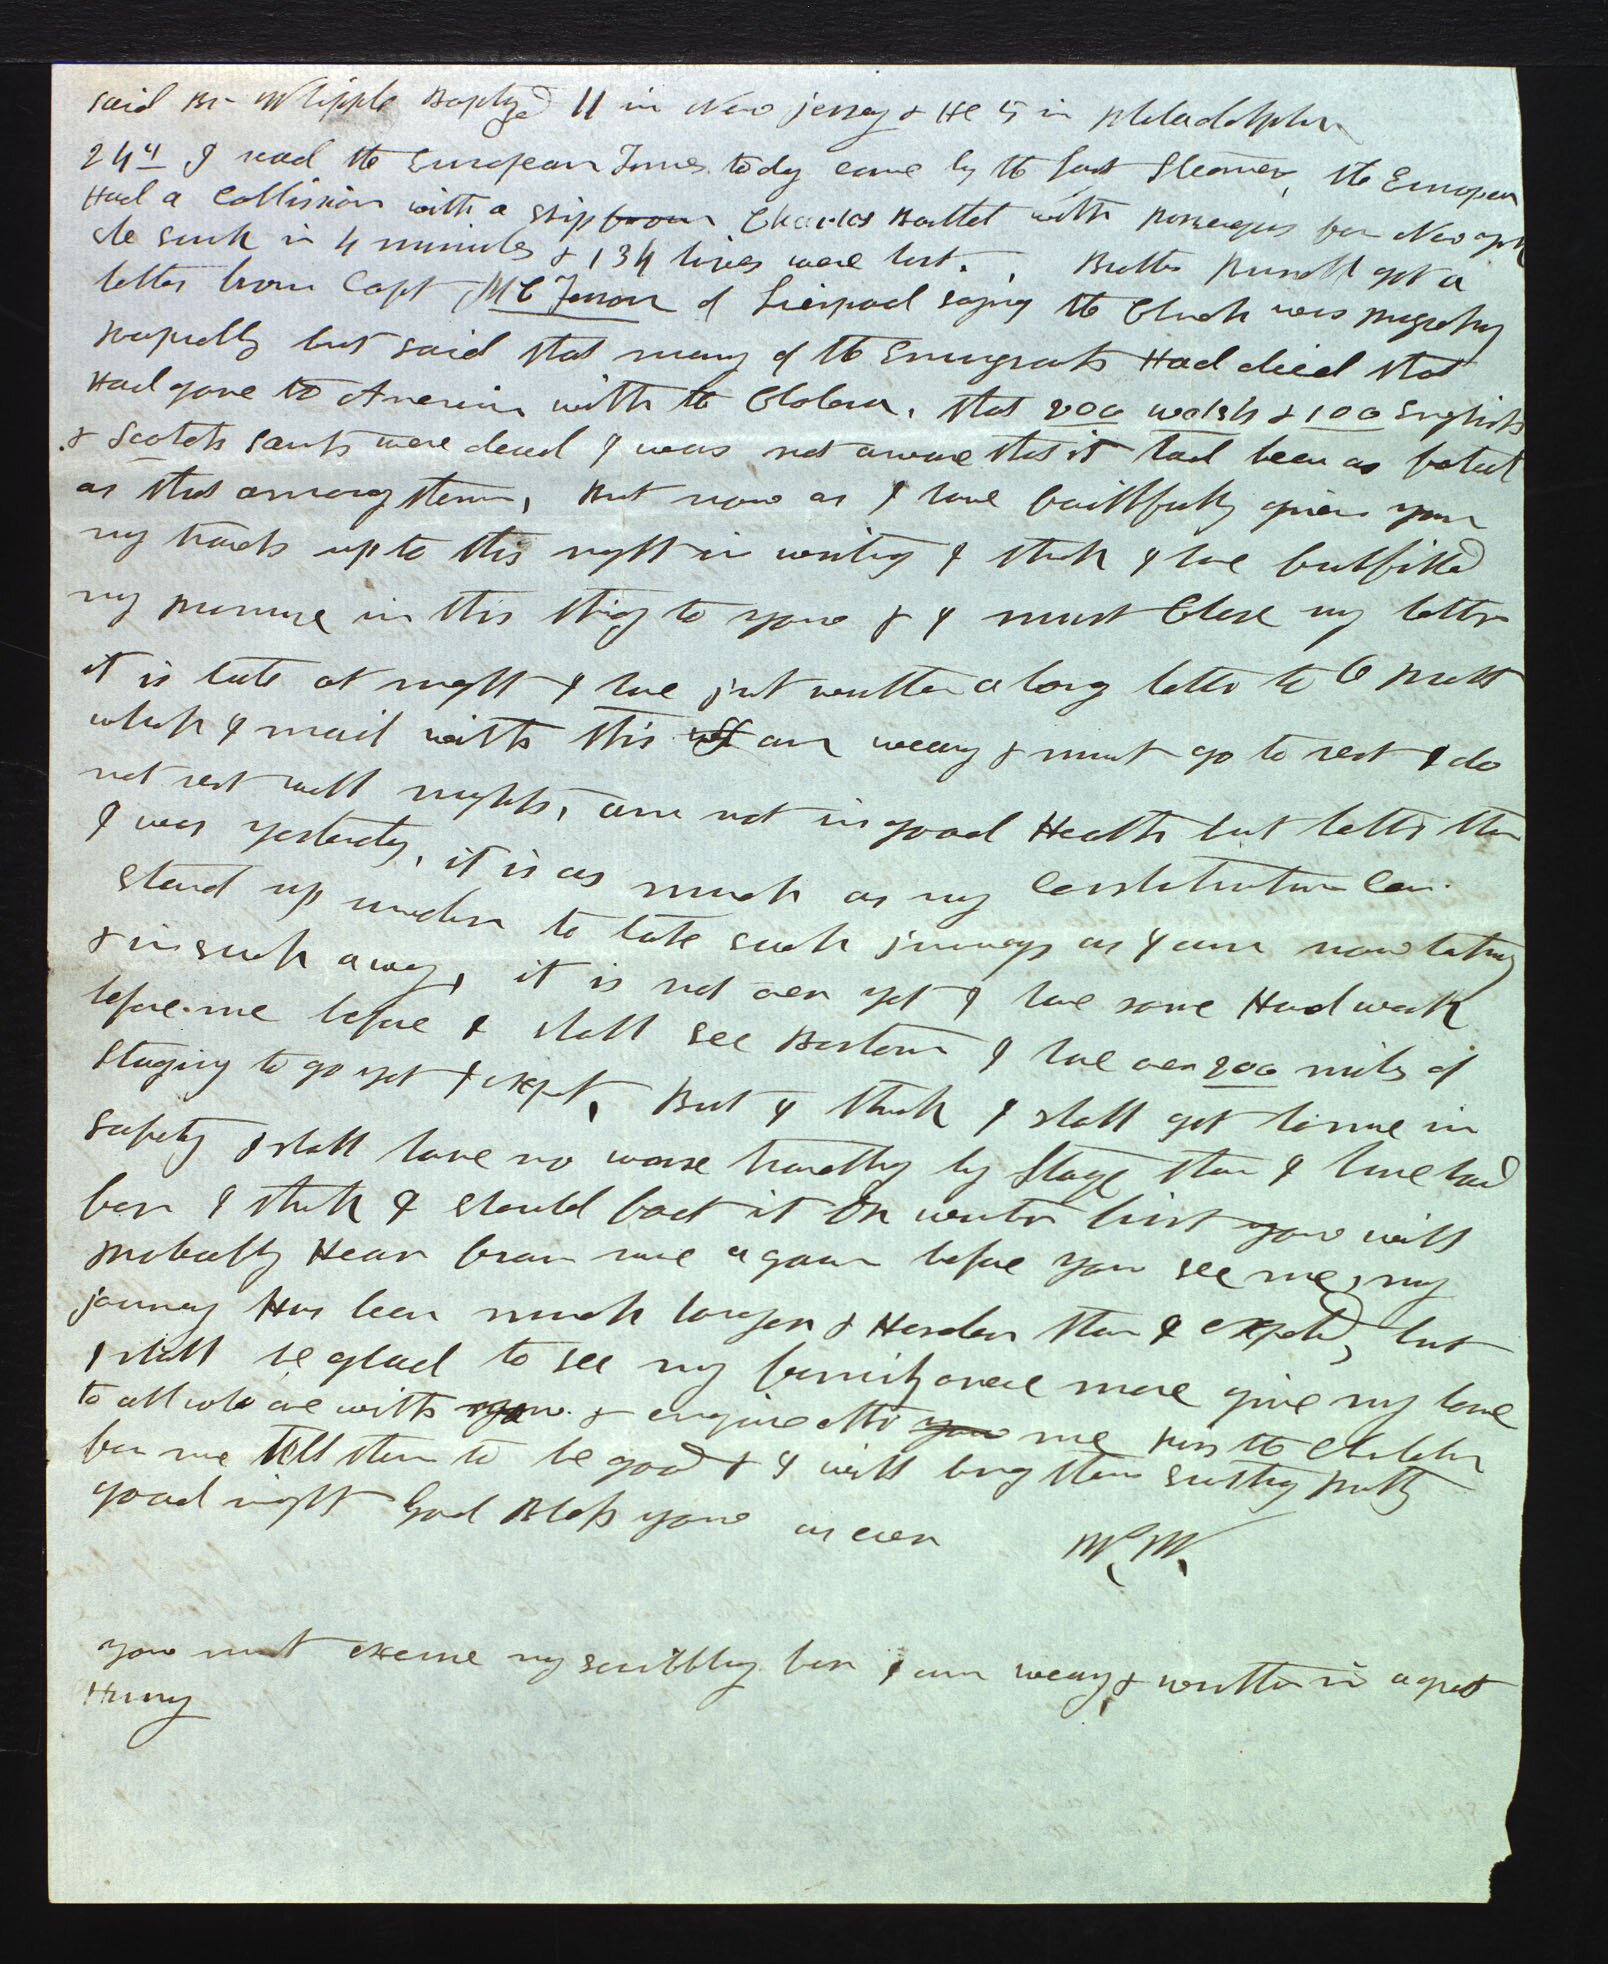 said Br Whipple Baptized 11 in New jersey & He 5 in Philadelphia
24th I read the European Times to day came by the last Steamer, the European
Had a Collission with a ship from Charles Bartlet with passengers for New York
she sunk in 4 minutes & 134 lives were lost. Brother Runell got a
letter from Capt McFerson of Liverpool saying the Church was progressing
rapidly but said that many of the Emigrants Had died that
Had gone to America with the Cholera, that 200 welsh & 100 English
& Scotch saints were dead I was not aware that it had been as fatal
as that among them, But now as I have faithfully given you
my travels up to this night in writing I think I have fullfilled
my promise in this thing to you & I must Close my letter
it is late at night I have just written a long letter to O Pratt
which I mail with this am weary & must go to rest I do
not rest well nights, am not in good Health but better than
I was yesterday, it is as much as my Constitution Can
stand up under to take such journeys as I am now taking
& in such a way, it is not over yet I have some Hard work
before me before I shall see Boston I have over 200 miles of
Staging to go yet I expect, But I think I shall get home in
safety I shall have no worse travelling by Stage than I have had
for I think I should foot it On winter first you will
probably Hear from me again before you see me, my
journey Has been much longer & Harder than I expected, but
I shall be glad to see my family once more give my love
to all who are with you & enquire after you me kiss the Children
for me tell them to be good & I will bring them something pretty
good night God Bless you as ever W. W.
you must excuse my scribbling for I am weary & written in a great
Hurry